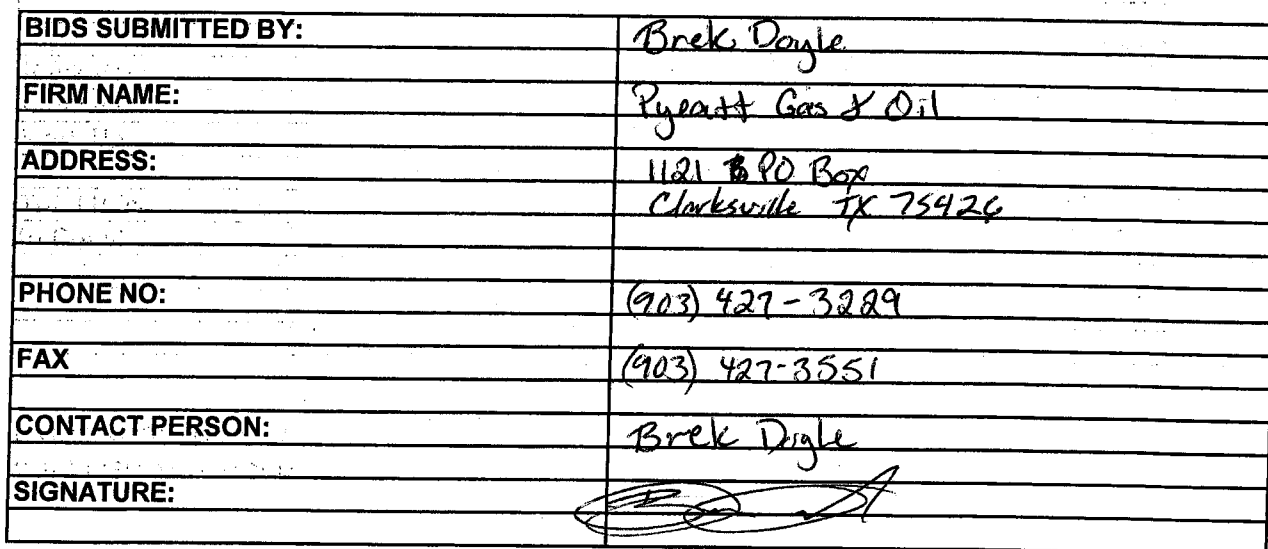 BIDS SUBMITTED BY: Brek Doyle
FIRM NAME: Pyeatt Gas & Oil
ADDRESS: 1121 PO Box
Clarksville TX 75426
PHONE NO: (903) 427-3229
FAX (903) 427-3551
CONTACT PERSON: Brek Doyle
SIGNATURE: